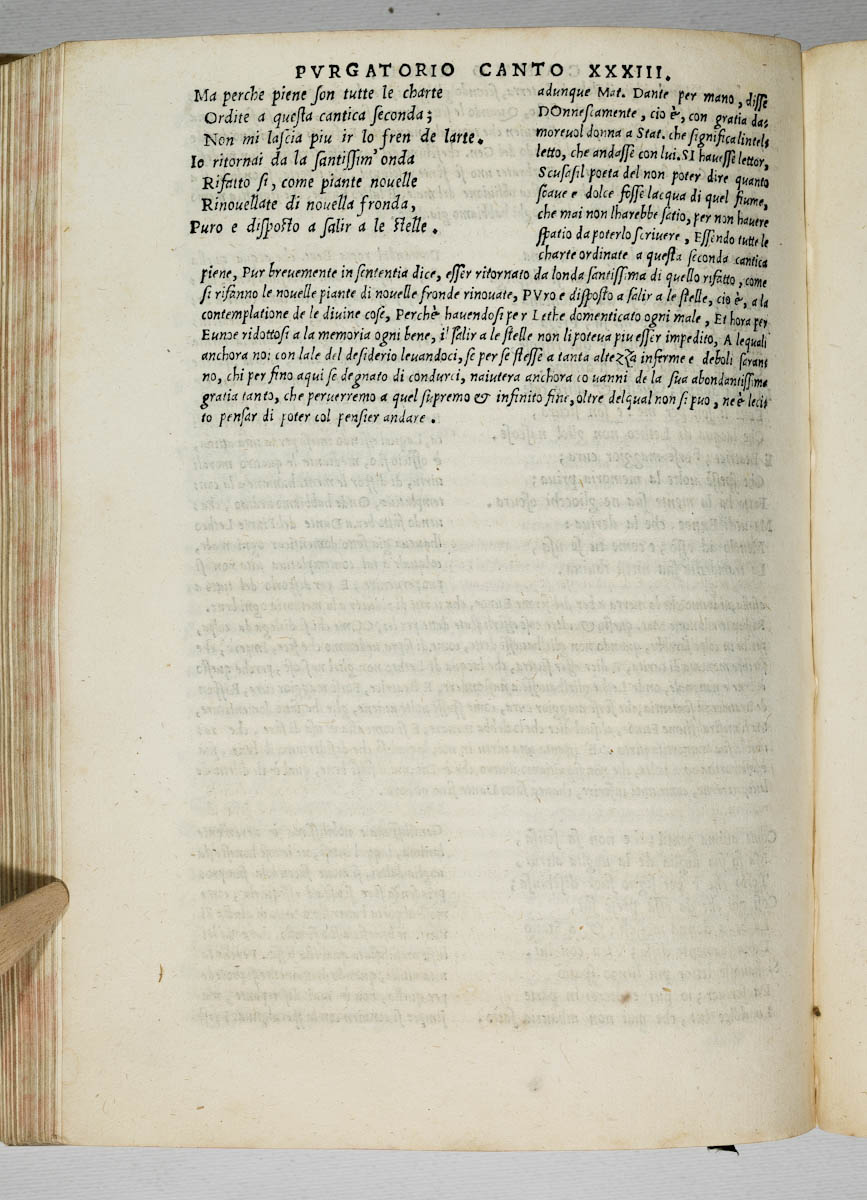 PVRGATORIO CANTO XXXIII.
Ma perche piene son tutte le charte
Ordite a questa cantica seconda;
Non mi lascia piu ir lo fren de larte.
Io ritornai da la santissim' onda
Rifatto si, come piante nouelle
Rinouellate di nouella fronda,
Puro e disposto a salir a le stelle.
adunque Mat. Dante per mano, disse
DOnnescamente, cio è, con gratia da=
moreuol donna a Stat. che significa lintel=
letto, che andasse con lui. SI hauesse lettor,
Scusasi il poeta del non poter dire quanto
soaue e dolce fosse lacqua di quel fiume,
che mai non lharebbe satio, per non hauere
spatio da poterlo scriuere, Essendo tutte le
charte ordinate a questa seconda cantica
piene, Pur breuemente in sententia dice, esser ritornato da londa santissima di quello rifatto, come
si rifanno le nouelle piante di nouelle fronde rinouate, PVro e disposto a salir a le stelle, cio è, a la
contemplatione de le diuine cose, Perchè hauendosi per Lethe domenticato ogni male, Et hora per
Eunoe ridottosi a la memoria ogni bene, il salir a le stelle non li poteua piu esser impedito, A le quali
anchora noi con lale del desiderio leuandoci, se per se stesse a tanta altezza inferme e deboli saran=
no, chi per fino aqui se degnato di condurci, naiutera anchora co uanni de la sua abondantissima
gratia tanto, che peruerremo a quel supremo & infinito fine, oltre del qual non si puo, ne è leci=
to pensar di poter col pensier andare.